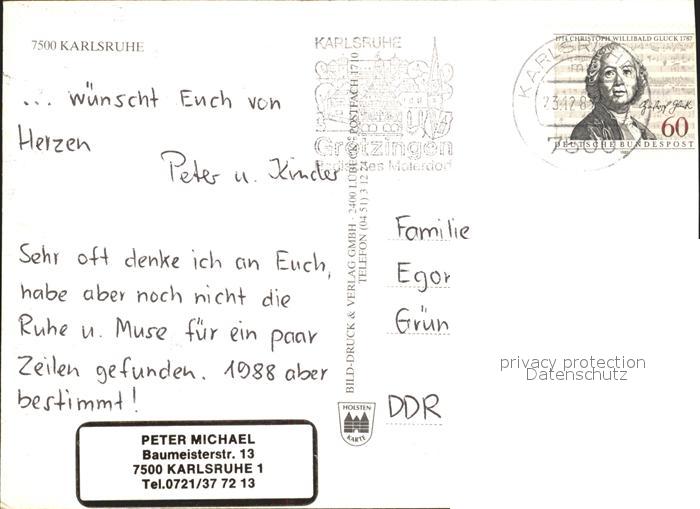 7500 KARLSRUHE
... wünscht Euch von
Herzen
Peter u. Kinder
Sehr oft denke ich an Euch,
habe aber noch nicht die
Ruhe u. Muse für ein paar
Zeilen gefunden. 1988 aber
bestimmt!
PETER MICHAEL
Baumeisterstr. 13
7500 KARLSRUHE 1
Tel.0721/37 72 13
BILD-DRUCK & VERLAG GMBH · 2400 LÜBECK · POSTFACH 1710
TELEFON (04 51) 3 12 74
HOLSTEN
KARTE
KARLSRUHE
Grötzingen
Badisches Malerdorf
KARLSRUHE
7500
1714 CHRISTOPH WILLIBALD GLUCK 1787
60
DEUTSCHE BUNDESPOST
Familie
Egor
Grün
DDR
privacy protection
Datenschutz